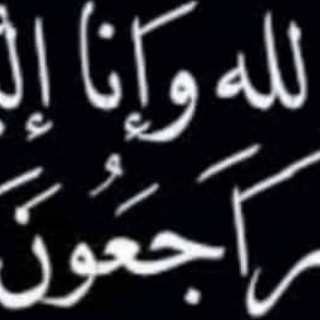 لله وَإِنا
رَاجعُونَ